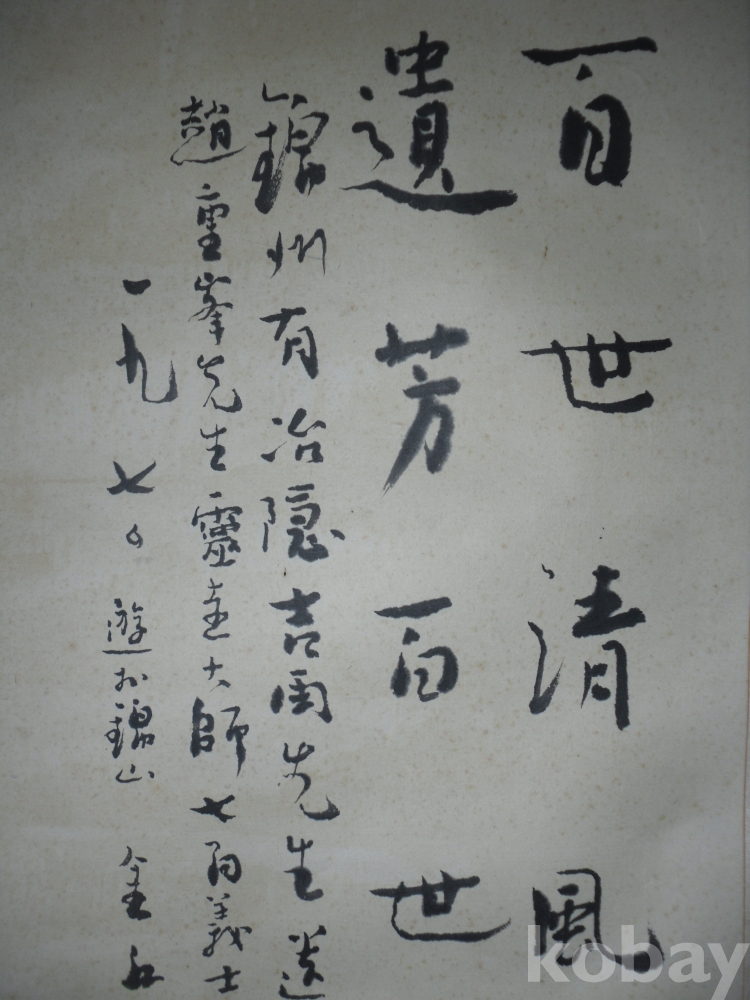 百世清風
遺芳百世
錦州有冶隱吉再先生遺
趙重峯先生靈圭大師七百義士
一九七〇 遊於錦山 金
kobay